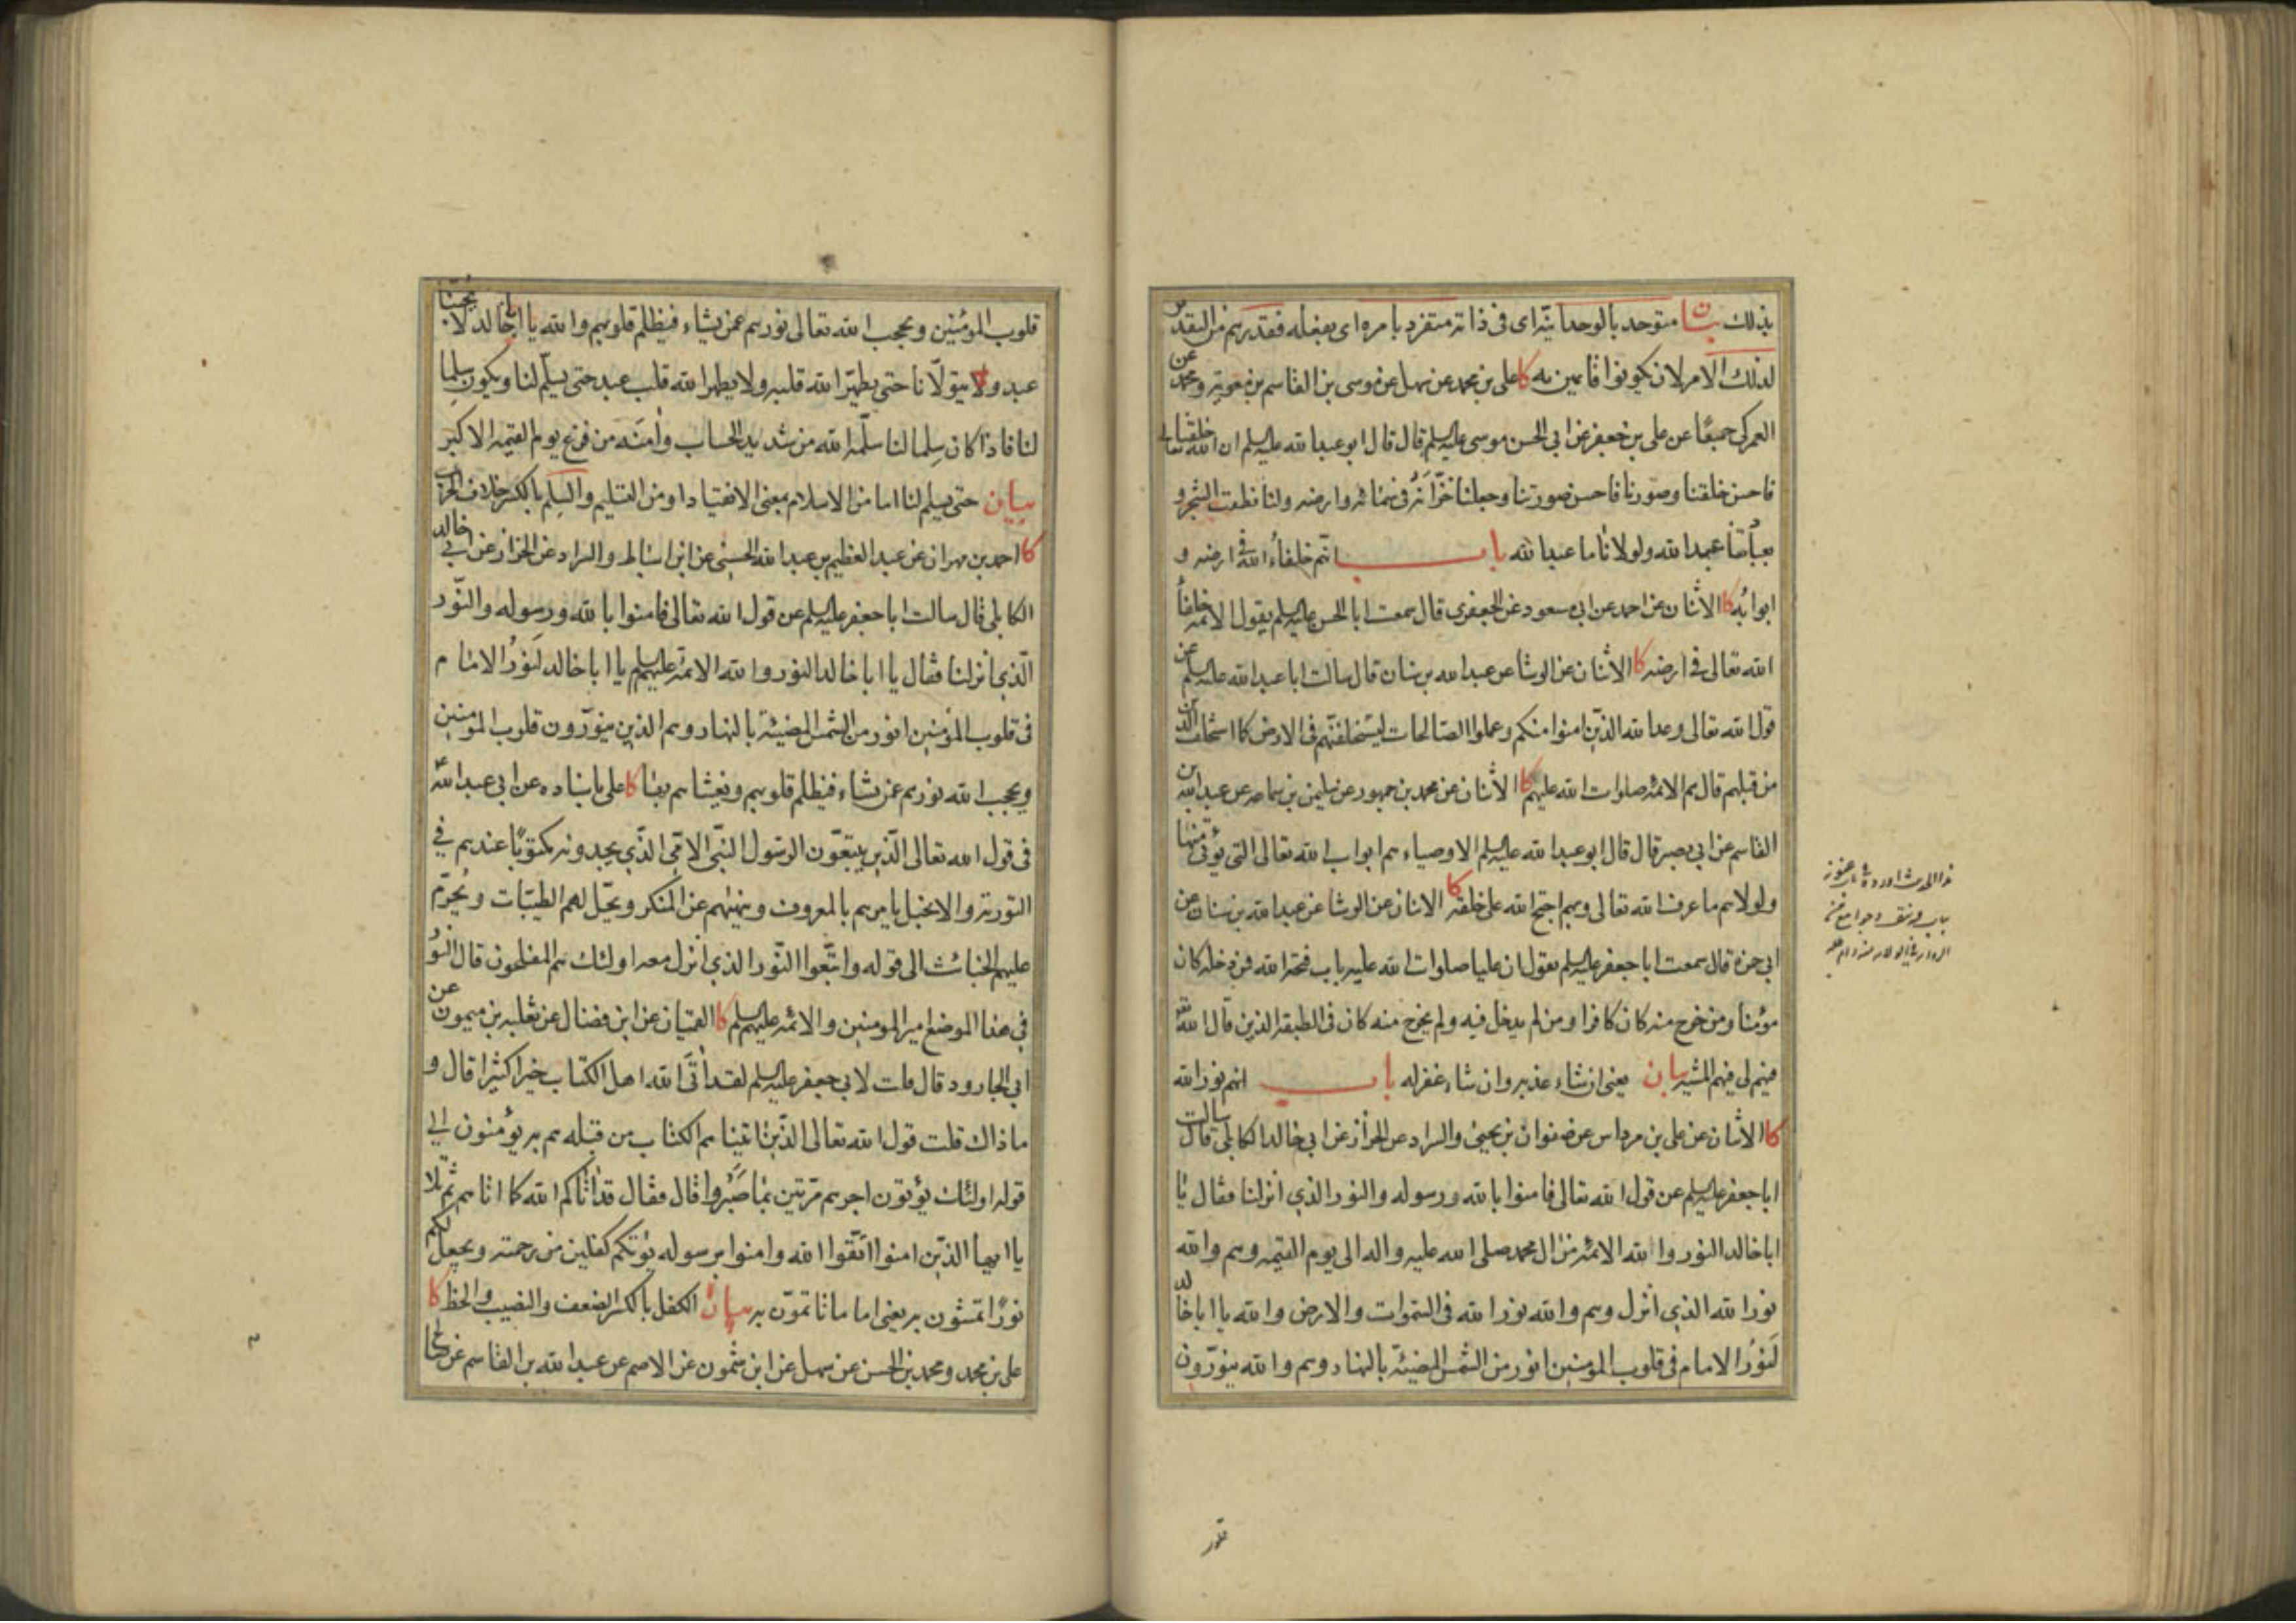 بذلك بيان متوحد بالوحدانية اى فى ذاته متفرد بامره اى بفعله فقدرهم من التقدير
لذلك الامر لان يكونوا قايمين به كا على بن محمد عن سهل عن موسى بن القاسم بن معوية ومحمد عن
العمركى جميعًا عن على بن جعفر عن ابى الحسن موسى عليه السلم قال قال ابو عبد الله عليه السلم ان الله تعالى خلقنا
فاحسن خلقنا وصوّرنا فاحسن صورتنا وجعلنا خزّانه فى سمائه وارضه ولنا نطقت الشجرة و
بعبادتنا عبد الله ولولانا ما عبد الله باب انهم خلفاء الله فى ارضه و
ابوابه كا الاثنان عن احمد عن ابى مسعود عن الجعفرى قال سمعت ابا الحسن عليه السلم يقول الائمة خلفاء
الله تعالى فى ارضه كا الاثنان عن الوشا عن عبد الله بن سنان قال سالت ابا عبد الله عليه السلم عن
قول الله تعالى وعد الله الذين امنوا منكم وعملوا الصالحات ليستخلفنهم فى الارض كما استخلف الذين
من قبلهم قال هم الائمة صلوات الله عليهم كا الاثنان عن محمد بن جمهور عن سليمن بن سماعه عن عبد الله بن
القاسم عن ابى بصير قال قال ابو عبد الله عليه السلم الاوصياء هم ابواب الله تعالى التى يؤتى منها
ولولاهم ما عرف الله تعالى وبهم احتج الله على خلقه كا الاثنان عن الوشا عن عبد الله بن سنان عن
ابى حمزة قال سمعت ابا جعفر عليه السلم يقول ان عليا صلوات الله عليه باب فتحه الله فمن دخله كان
مؤمنا ومن خرج منه كان كافرا ومن لم يدخل فيه ولم يخرج منه كان فى الطبقة الذين قال الله
فيهم لى فيهم المشية بيان يعنى ان شاء عذبهم وان شاء غفر له باب انهم نور الله
كا الاثنان عن على بن مرداس عن صفوان بن يحيى والسراد عن الخراز عن ابى خالد الكابلى قال سالت
ابا جعفر عليه السلم عن قول الله تعالى فامنوا بالله ورسوله والنور الذي انزلنا فقال يا
ابا خالد النور والله الائمة من ال محمد صلى الله عليه واله الى يوم القيمه وهم والله
نور الله الذي انزل وهم والله نور الله فى السموات والارض والله يا ابا خالد
لَنورُ الامام فى قلوب المومنين انور من الشمس المضيئة بالنهار وهم والله ينوّرون
باب
قلوب المؤمنين ويحجب الله تعالى نورهم عمن يشاء فيظلم قلوبهم والله يا ابا خالد لا يحبنا
عبد ولا يتولّانا حتى يطهّر الله قلبه ولا يطهر الله قلب عبد حتى يسلّم لنا ويكون سِلما
لنا فاذا كان سِلما لنا سلّمه الله من شديد الحساب وأمَنَه من فزع يوم القيمه الاكبر
بيان حتى يسلم لنا اما من الاسلام بمعنى الانقياد او من التسليم والسِلم بالكسر خلاف الحرب
كا احمد بن مهران عن عبد العظيم بن عبد الله الحسنى عن ابن اسباط والسراد عن الخراز عن ابى خالد
الكابلى قال سالت ابا جعفر عليه السلم عن قول الله تعالى فامنوا بالله ورسوله والنّور
الّذي انزلنا فقال يا ابا خالد النور والله الائمة عليهم السلم يا ابا خالد لَنورُ الامام
فى قلوب المؤمنين انور من الشمس المضيئة بالنهار وهم الذين ينوّرون قلوب المؤمنين
ويحجب الله نورهم عمن يشاء فيظلم قلوبهم ويغشاهم بها كا على باسناده عن ابى عبد الله ع
فى قول الله تعالى الّذين يتبعون الرسول النبى الامّى الّذي يجدونه مكتوبًا عندهم في
التورية والانجيل يامرهم بالمعروف وينهيهم عن المنكر ويحلّ لهم الطيّبات ويُحرّم
عليهم الخبائث الى قوله واتّبعوا النّور الذي انزل معه اولئك هم المفلحون قال النّور
فى هذا الموضع امير المومنين والائمه عليهم السلم كا القميان عن ابن فضال عن ثعلبه بن ميمون عن
ابى الجارود قال قلت لابى جعفر عليه السلم لقد أتَى الله اهل الكتاب خيرا كثيرا قال و
ماذاك قلت قول الله تعالى الذين اتيناهم الكتاب من قبله هم به يؤمنون الى
قوله اولئك يؤتون اجرهم مرّتين بما صَبَرُوا قال فقال قد أتاكم الله كما اتاهم ثم تلا
يا ايها الذين امنوا اتّقوا الله وامنوا برسوله يؤتكم كفلين من رحمته ويجعل لكم
نورًا تمشون به يعنى اماما تاتمّون به بيان الكفل بالكسر الضعف والنصيب والحظ كا
على بن محمد ومحمد بن الحسن عن سهل عن ابن شمون عن الاصم عن عبد الله بن القاسم عن صالح